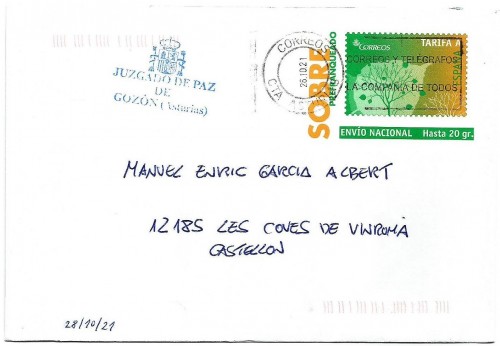 JUZGADO DE PAZ
DE
GOZÓN (Asturias)
CORREOS
26.10.21
SOBRE
PREFRANQUEADO
CORREOS
TARIFA A
ESPAÑA
CORREOS Y TELÉGRAFOS
LA COMPAÑIA DE TODOS
ENVÍO NACIONAL Hasta 20 gr.
MANUEL ENRIC GARCIA ALBERT
12185 LES COVES DE VINROMÀ
CASTELLON
28/10/21